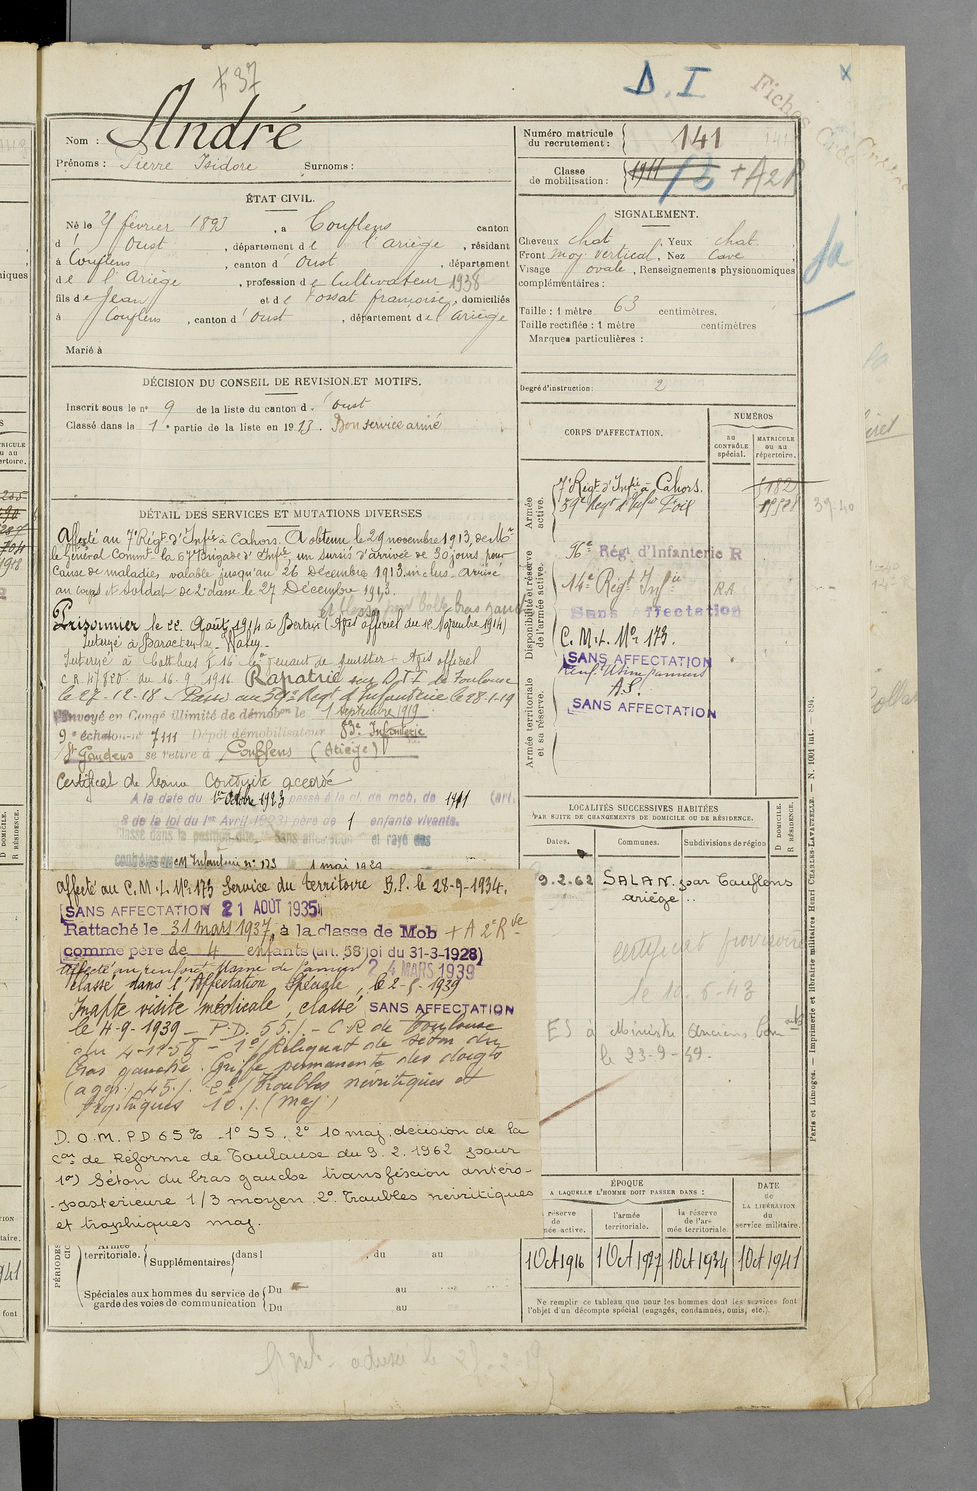 + 37
D. I
Nom : André
Prénoms : Pierre Isidore Surnoms :
Numéro matricule du recrutement : 141
Classe de mobilisation : 1911 + A 2 R
ÉTAT CIVIL.
Né le 9 février 1893, à Couflens canton
d' Oust, département de l'Ariège, résidant
à Couflens, canton d' Oust, département
de l'Ariège, profession de Cultivateur 1938
fils de Jean et de Fossat françoise, domiciliés
à Couflens, canton d' Oust, département de l'Ariège
Marié à
SIGNALEMENT.
Cheveux chat., Yeux chat.
Front moy. vertical, Nez Cave
Visage ovale, Renseignements physionomiques
complémentaires :
Taille : 1 mètre 63 centimètres.
Taille rectifiée : 1 mètre centimètres
Marques particulières :
Degré d'instruction : 2
DÉCISION DU CONSEIL DE REVISION ET MOTIFS.
Inscrit sous le n° 9 de la liste du canton d. Oust
Classé dans le 1e partie de la liste en 1913. Bon service armé
CORPS D'AFFECTATION.
NUMÉROS
au contrôle spécial.
MATRICULE ou au répertoire.
Armée active.
7e Régt d'Infie à Cahors.
59e Régt d'Infie Foix
Disponibilité et réserve de l'armée active.
96e Régt d'Infanterie R
14e Régt Infie R.A.
Sans Affectation
C. M. I. No 173.
SANS AFFECTATION
A.S.
SANS AFFECTATION
Armée territoriale et sa réserve.
DÉTAIL DES SERVICES ET MUTATIONS DIVERSES
Affecté au 7e Régt d'Infie à Cahors. A obtenu le 29 novembre 1913, de Mr
le Général Commt la 67e Brigade d'Infie un sursis d'arrivée de 30 jours pour
cause de maladies, valable jusqu'au 26 Décembre 1913 inclus. Arrivé
au corps et Soldat de 2e classe le 27 Décembre 1913.
Prisonnier le 22 Août 1914 à Bertrix (Avis officiel du 12 Novembre 1914)
Interné à
Interné à
C.R. du 16. 9. 1916 Rapatrié Toulouse
le 27-12-18. Passé au 59e Regt d'Infanterie le 28-1-19
Envoyé en Congé illimité de démobon le 1 Septembre 1919
9e échelon no 7111 Dépôt démobilisateur 83e Infanterie
St Gaudens se retire à Couflens (Ariège)
Certificat de bonne Conduite accordé
A la date du 1er Octobre 1923 passé à la cl. de mob. de 1911 (art.
8 de la loi du 1er Avril 1923) père de 1 enfants vivants.
Classé dans la position dite Sans affectation et rayé des
contrôles du CM Infanterie no 173 le 1 mai 1929
Affecté au C. M. I. No 173 Service du territoire B.P. le 28-9-1934.
SANS AFFECTATION 21 AOUT 1935
Rattaché le 31 mars 1937 à la classe de Mob + A 2e Rve
comme père de 4 enfants (art. 58 loi du 31-3-1928)
24 MARS 1939
classé dans l'Affectation Spéciale, le 2-8-1939
Inapte visite médicale, classé SANS AFFECTATION
le 4-9-1939 - P.D. 55% - C.R de Toulouse
du 4-11-58 - 1°/ Reliquat de séton du
bras gauche. Griffe permanente des doigts
(agg.) 45% 2°/ Troubles nevritiques et
trophiques 10% (maj)
D. O. M. P D 65% - 1° 55, 2° 10 maj. décision de la
Con de Réforme de Toulouse du 9. 2. 1962 pour
1°) Séton du bras gauche transfixion antéro-
-postérieure 1/3 moyen 2° Troubles névritiques
et trophiques maj.
LOCALITÉS SUCCESSIVES HABITÉES
PAR SUITE DE CHANGEMENTS DE DOMICILE OU DE RÉSIDENCE.
D DOMICILE.
R RÉSIDENCE.
Dates. Communes. Subdivisions de région
9.2.62 SALAN par Couflens
ariège
certificat provisoire
le 10. 6-43
ES à Ministre Anciens Combants
le 23-9-49.
ÉPOQUE
A LAQUELLE L'HOMME DOIT PASSER DANS :
l'armée territoriale.
la réserve de l'armée territoriale.
DATE DE LA LIBÉRATION du service militaire.
1 Oct 1916 1 Oct 1927 1 Oct 1934 1 Oct 1941
territoriale. Supplémentaires dans l , du au
Spéciales aux hommes du service de garde des voies de communication
Du au
Du au
Ne remplir ce tableau que pour les hommes dont les services font
l'objet d'un décompte spécial (engagés, condamnés, omis, etc.).
Paris et Limoges. — Imprimerie et librairie militaires Henri CHARLES-LAVAUZELLE. — N. 1001 int. — 894.